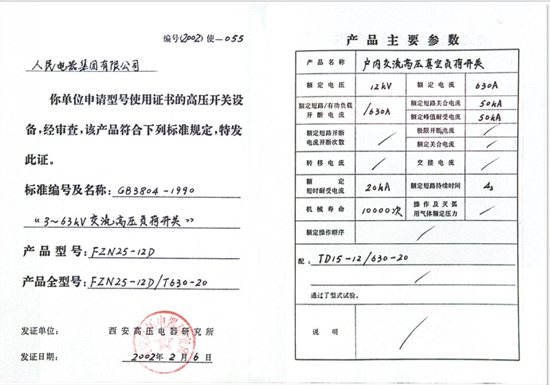 编号(2002)使-055
人民电器集团有限公司
你单位申请型号使用证书的高压开关设
备,经审查,该产品符合下列标准规定,特发
此证。
标准编号及名称:GB3804-1990
“3~63kV交流高压负荷开关”
产品型号:FZN25-12D
产品全型号:FZN25-12D/T630-20
发证单位: 西安高压电器研究所
发证日期: 2002年2月6日
产品主要参数
产品名称 户内交流高压真空负荷开关
额定电压 12kV 额定电流 630A
额定短路/有功负载开断电流 /630A 额定短路关合电流 50kA
额定峰值耐受电流 50kA
额定短路开断电流开断次数 / 极限开断电流 /
额定关合电流 /
转移电流 / 交接电流 /
额定短时耐受电流 20kA 额定短路持续时间 4s
机械寿命 10000次 操作及灭弧用气体额定压力 /
额定操作顺序 /
配: TD15-12/630-20
通过了型式试验。
说明 /